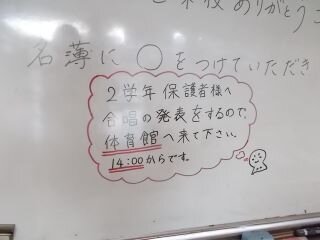 来校ありがとうご
名薄に ○ をつけていただき
2学年 保護者様へ
合唱の発表をするので、
体育館へ来て下さい。
14:00からです。